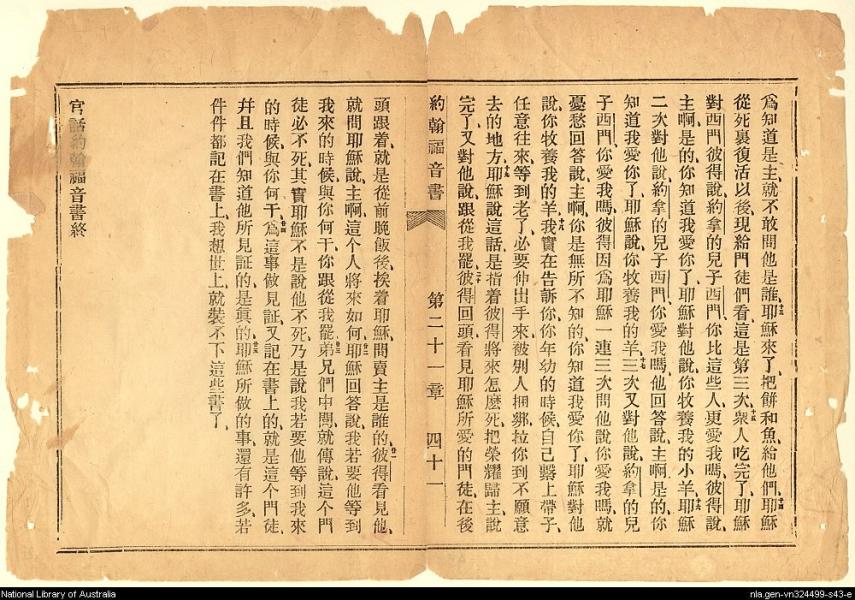 爲知道是主、就不敢問他是誰、十三耶穌來了、把餅和魚給他們、十四耶穌
從死裏復活以後、現給門徒們看、這是第三次、十五衆人吃完了、耶穌
對西門彼得說、約拿的兒子西門、你比這些人、更愛我嗎、彼得說、
主啊、是的、你知道我愛你了、耶穌對他說、你牧養我的小羊、十六耶穌
二次對他說、約拿的兒子西門、你愛我嗎、他回答說、主啊、是的、你
知道我愛你了、耶穌說、你牧養我的羊、十七三次又對他說、約拿的兒
子西門、你愛我嗎、彼得因爲耶穌一連三次問他說、你愛我嗎、就
憂愁回答說、主啊、你是無所不知的、你知道我愛你了、耶穌對他
說、你牧養我的羊、十八我實在告訴你、你年幼的時候、自己繫上帶子、
任意往來、等到老了、必要伸出手來、被別人捆綁、拉你到不願意
去的地方、十九耶穌說這話、是指着彼得將來怎麽死、把榮耀歸主、說
完了、又對他說、跟從我罷、二十彼得回頭、看見耶穌所愛的門徒、在後
約翰福音書 第二十一章 四十一
頭跟着、就是從前晚飯後、挨着耶穌、問賣主是誰的、廿一彼得看見他、
就問耶穌說、主啊、這个人將來如何、廿二耶穌回答說、我若要他等到
我來的時候、與你何干、你跟從我罷、廿三弟兄們中間、就傳說、這个門
徒必不死、其實耶穌不是說他不死、乃是說我若要他等到我來
的時候、與你何干、廿四爲這事做見証、又記在書上的、就是這个門徒、
幷且我們知道他所見証的是眞的、廿五耶穌所做的事、還有許多、若
件件都記在書上、我想世上、就裝不下這些書了、
官話約翰福音書終
National Library of Australia
nla.gen-vn324499-s43-e